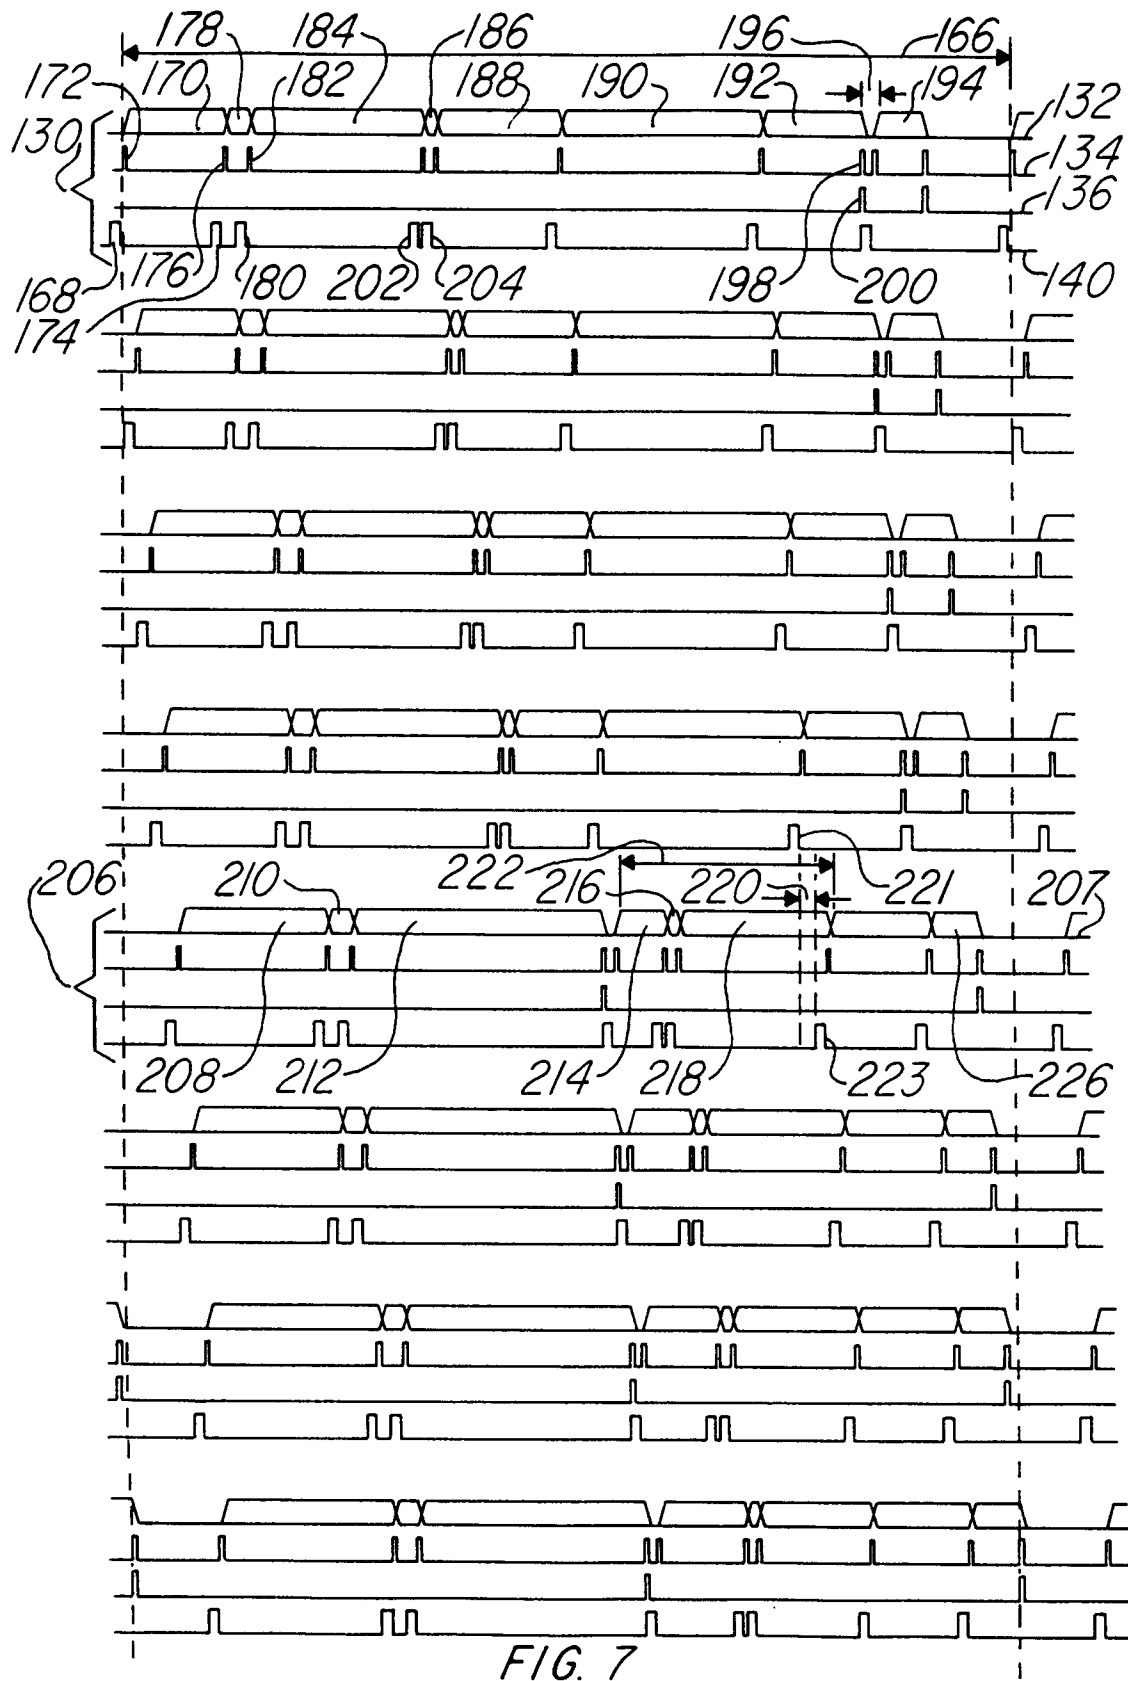 178 184 186 196 166
172 170 182 188 190 192 194
130 132
134
136
168 176 180 202 204 198 200 140
174
206 210 222 216 220 221 207
208 212 214 218 223 226
FIG. 7